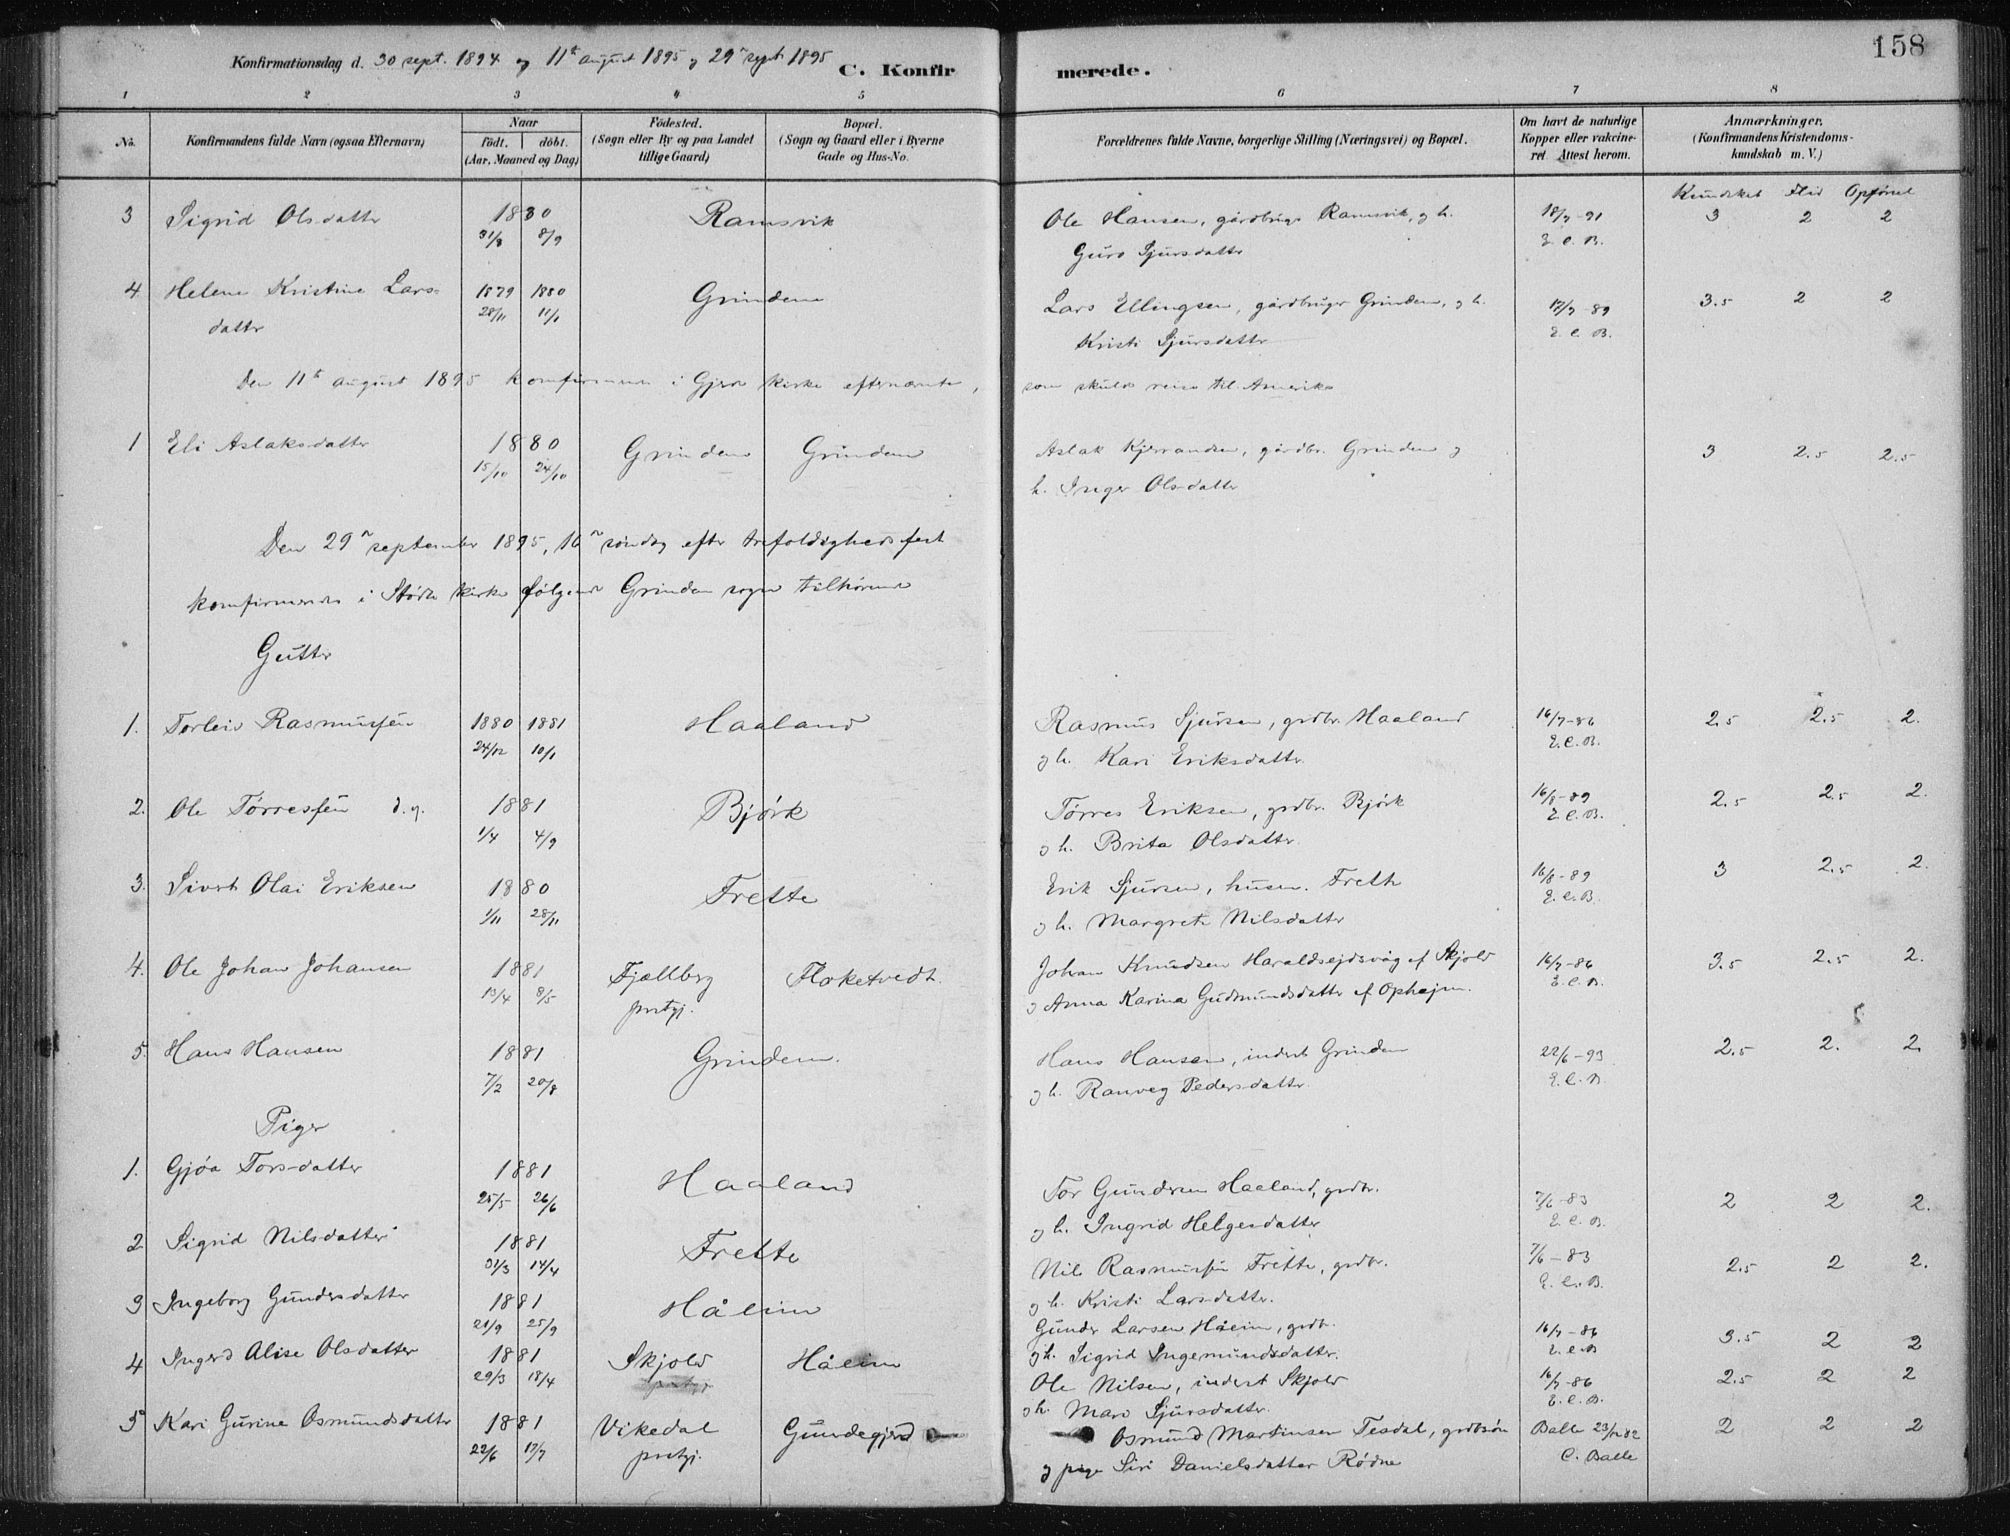 158
Konfirmationsdag d. 30 sept. 1894 og 11te august 1895 og 29n sept. 1895
C. Konfirmerede.
1 2 3 4 5 6 7 8
No.
Konfirmandens fulde Navn (ogsaa Efternavn)
Naar
født. døbt.
(Aar, Maaned og Dag)
Fødested.
(Sogn eller By og paa Landet
tillige Gaard)
Bopæl.
(Sogn og Gaard eller i Byerne
Gade og Hus-No.
Forældrenes fulde Navne, borgerlige Stilling (Næringsvei) og Bopæl.
Om havt de naturlige
Kopper eller vakcine-
ret Attest herom.
Anmærkninger.
(Konfirmandens Kristendoms-
kundskab m. V.)
Kundskab Flid Opførsel
3 Sigrid Olsdatter 1880 Ramsvik Ole Hansen, gårdbruger Ramsvik, og h. 18/7-91 3 2 2
31/8 8/9 Guro Sjursdatter E. C. B.
4. Helene Kristine Lars- 1879 1880 Grindem Lars Ellingsen, gårdbruger Grindem, og h. 17/7-89 3.5 2 2
datter 28/11 11/1 Kristi Sjursdatter E. C. B.
Den 11te august 1895 konfirmeret i Gjerde kirke efternævnte, som skulde reise til Amerika
1 Eli Aslaksdatter 1880 Grindem Grindem Aslak Kjerrandsen, gårdbr. Grindem og 3 2.5 2.5
15/10 24/10 h. Inger Olsdatter
Den 29n september 1895, 16n søndag efter trefoldighedsfest
konfirmeredes i Stødle kirke følgende Grindem sogn tilhørende
Gutter
1. Torleiv Rasmussen 1880 1881 Haaland Rasmus Sjursen, grdbr. Haaland 16/7-86 2.5 2.5 2.
24/12 10/1 og h. Kari Eriksdatter E. C. B.
2. Ole Tørressen d. y. 1881 Bjørk Tørres Eriksen, grdbr. Bjørk 16/8-89 2.5 2.5 2.
1/4 4/9 og h. Brita Olsdatter. E. C. B.
3. Sivert Olai Eriksen 1880 Frette Erik Sjursen, husm. Frette 16/8-89 3 2.5 2.
1/11 28/11 og h. Margrete Nilsdatter E. C. B.
4. Ole Johan Johansen 1881 Fjællberg Floketvedt. Johan Knudsen Haraldsejdsvåg af Skjold 16/7-86 3.5 2.5 2.
13/4 8/5 prstgj. og Anna Karina Gudmundsdatter af Ophejm. E. C. B.
5. Hans Hansen 1881 Grindem. Hans Hansen, inderst Grindem 22/6-93 2.5 2. 2.
7/2 20/8 og h. Ranveg Pedersdatter. E. C. B.
Piger
1. Gjøa Torsdatter 1881 Haaland Tor Gundersen Haaland, grdbr. 7/6-83 2 2 2.
25/5 26/6 og h. Ingrid Helgesdatter E. C. B.
2 Sigrid Nilsdatter 1881 Frette Nils Rasmussen Frette, grdbr. 7/6-83 2.5 2 2.
31/3 14/4 og h. Kristi Larsdatter. E. C. B.
3 Ingeborg Gundersdatter 1881 Håeim Gunder Larsen Håeim, grdbr. 16/7-86 3.5 2 2
21/9 25/9 og h. Sigrid Ingemundsdatter. E. C. B
4 Ingerd Alise Olsdatter 1881 Skjold Håeim Ole Nilsen, inderst Skjold 16/7-86 2.5 2 2
29/3 18/4 prstgj. og h. Mari Sjursdatter. E. C. B.
5 Kari Gurine Osmundsdatter 1881 Vikedal Gundegjerd Osmund Martinsen Tesdal, grdbsøn Balle 23/12 82 2 2 2
22/6 17/7 prstgj. og pige Siri Danielsdatter Rødne C. Balle